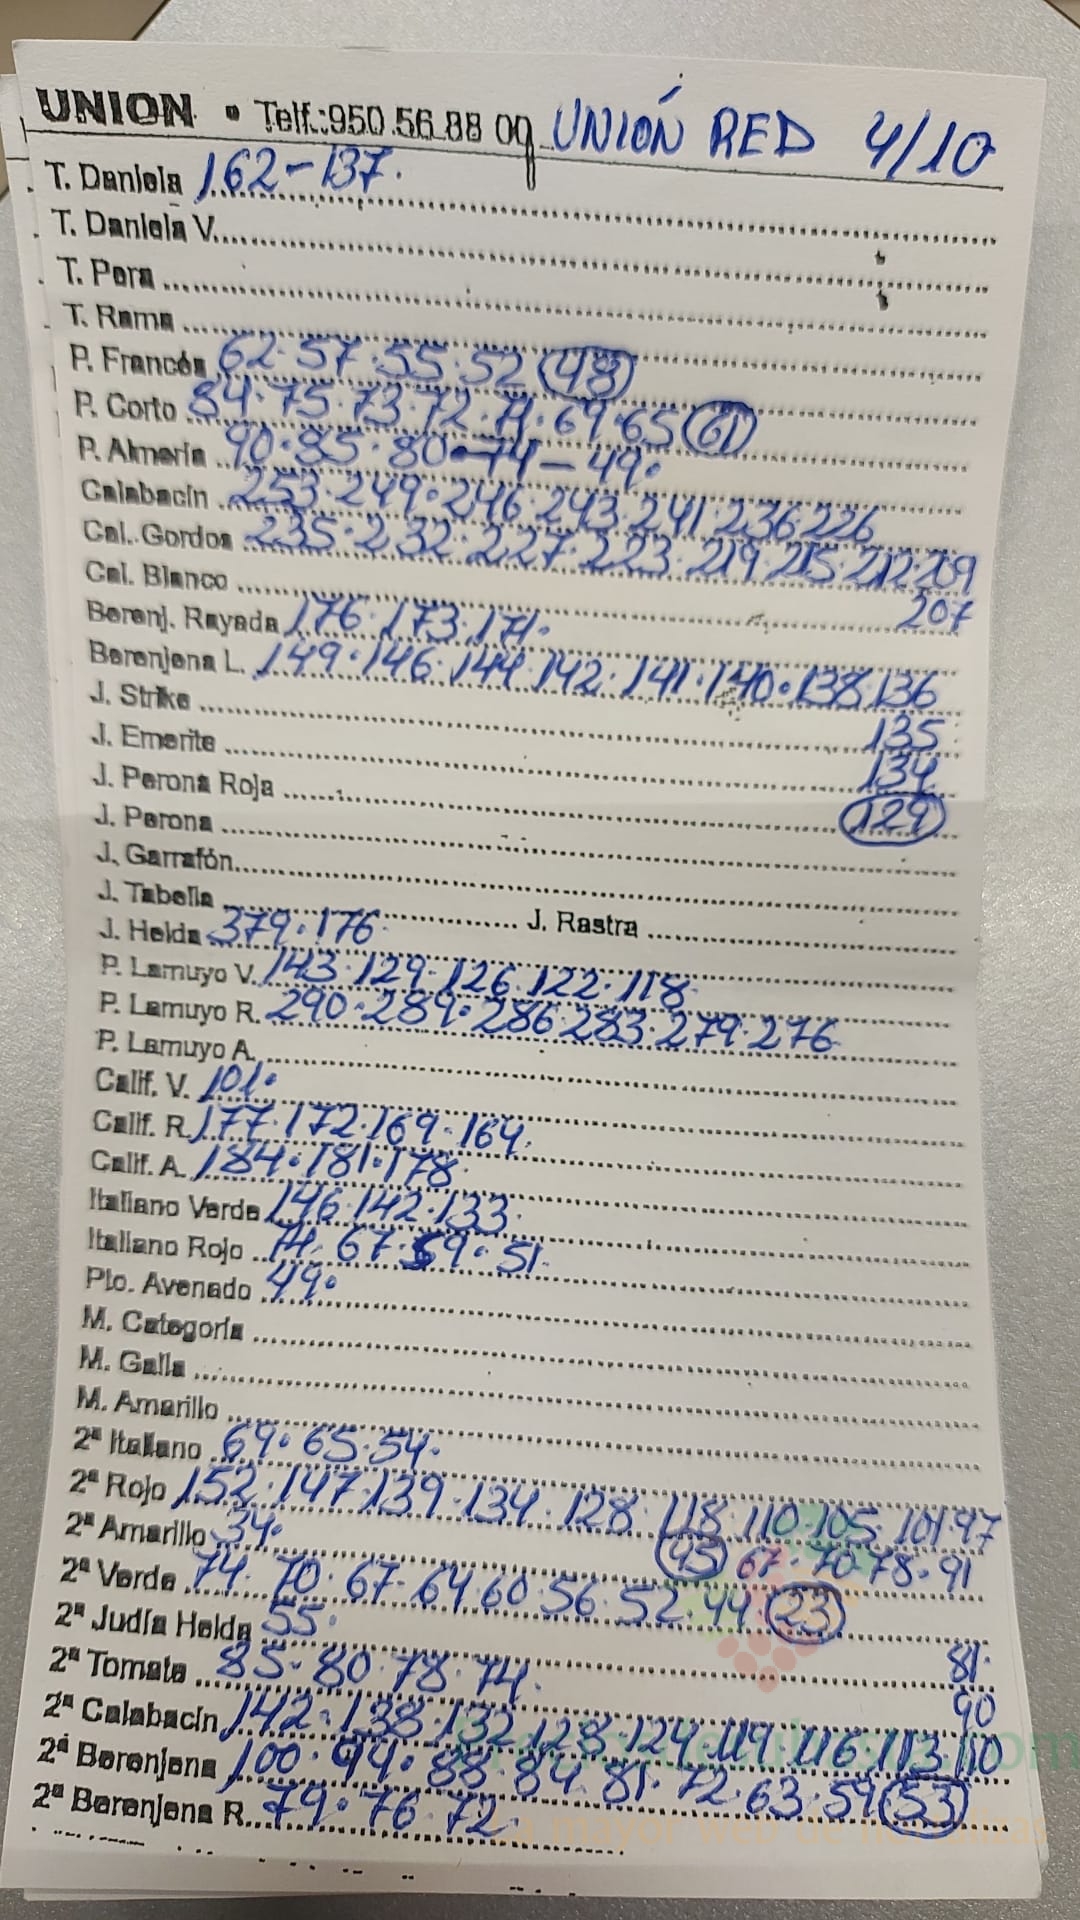 UNION • Telf.:950.56.88 09 UNIÓN RED 4/10
T. Daniela 162-137.
T. Daniela V.
T. Pera
T. Rama
P. Francés 62·57·55·52 (48)
P. Corto 84·75·73·72·71·69·65 (61)
P. Almería 90·85·80·74-49·
Calabacín 253·249·246·243·241·236·226
Cal. Gordos 235·232·227·223·219·215·212·209
207
Cal. Blanco
Berenj. Rayada 176·173·171·
Berenjena L. 149·146·144·142·141·140·138·136
135
134
(129)
J. Strike
J. Emerite
J. Perona Roja
J. Perona
J. Garrafón
J. Tabella J. Rastra
J. Helda 379·176
P. Lamuyo V. 143·129·126·122·118
P. Lamuyo R. 290·289·286·283·279·276
P. Lamuyo A.
Calif. V. 101·
Calif. R. 177·172·169·164
Calif. A. 184·181·178
Italiano Verde 146·142·133
Italiano Rojo 71·67·59·51·
Pto. Avenado 49·
M. Categoría
M. Galia
M. Amarillo
2ª Italiano 69·65·54·
2ª Rojo 152·147·139·134·128·118·110·105·101·97
(45) 67·70·78·91
2ª Amarillo 34·
2ª Verde 74·70·67·64·60·56·52·44 (23)
2ª Judía Helda 55·
81·
2ª Tomate 85·80·78·74·
90
2ª Calabacín 142·138·132·128·124·119·116·113·110
2ª Berenjena 100·94·88·84·81·72·63·59 (53)
2ª Berenjena R. 79·76·72·